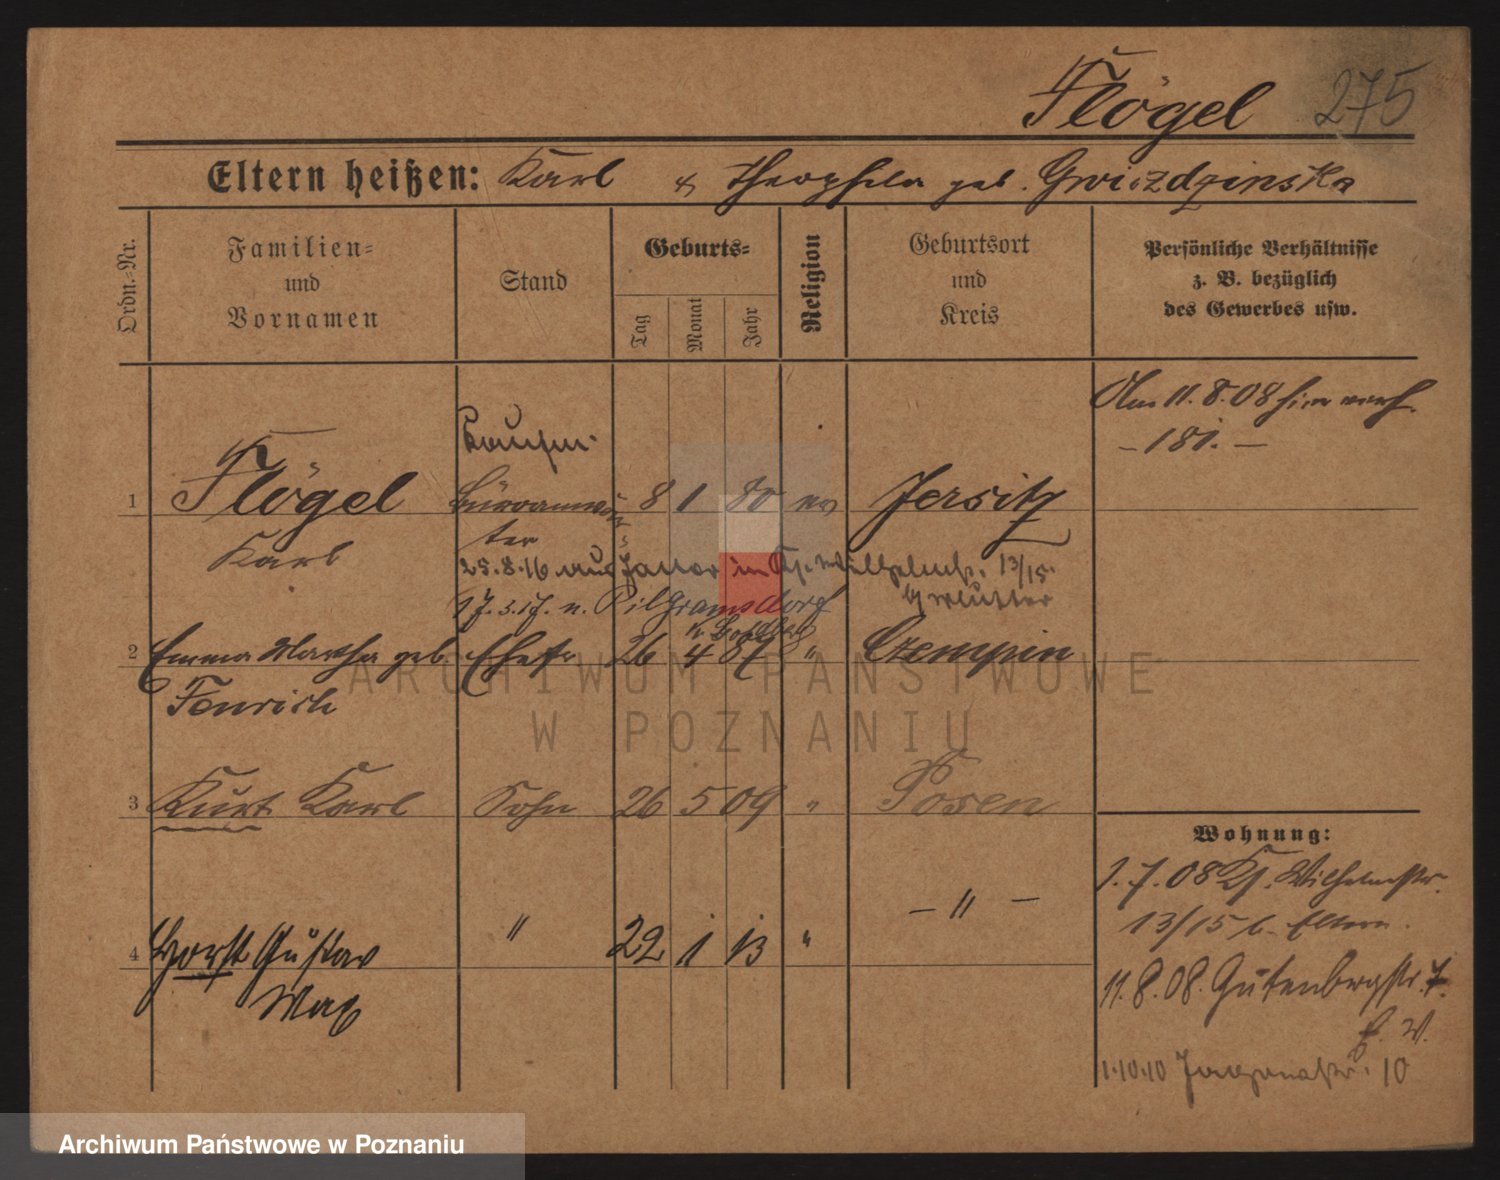 Flögel 275
Eltern heißen: Karl & Theophila geb. Gwizdzinska
Ordn.-Nr.
Familien-
und
Vornamen
Stand
Geburts-
Tag
Monat
Jahr
Religion
Geburtsort
und
Kreis
Persönliche Verhältnisse
z. B. bezüglich
des Gewerbes usw.
Am 11.8.08 hier verh.
- 181. -
Kaufm.
1 Flögel 8 1 80 ev Jersitz
Karl
25.8.16 aus Jauer in Kr. Wilhelmstr. 13/15.
17.3.17. n. Pilgramsdorf
2 Emma Martha geb. Ehefr 26 4 87 " Czempin
Fenrich
3 Kurt Karl Sohn 26 5 09 " Posen
4 Horst Gustav " 22 1 13 " - " -
Max
Wohnung:
1.7.08 Kr. Wilhelmstr.
13/15 b. Eltern.
11.8.08. Gutenbergstr. 7.
1.10.10 10
ARCHIWUM PAŃSTWOWE
W POZNANIU
Archiwum Państwowe w Poznaniu